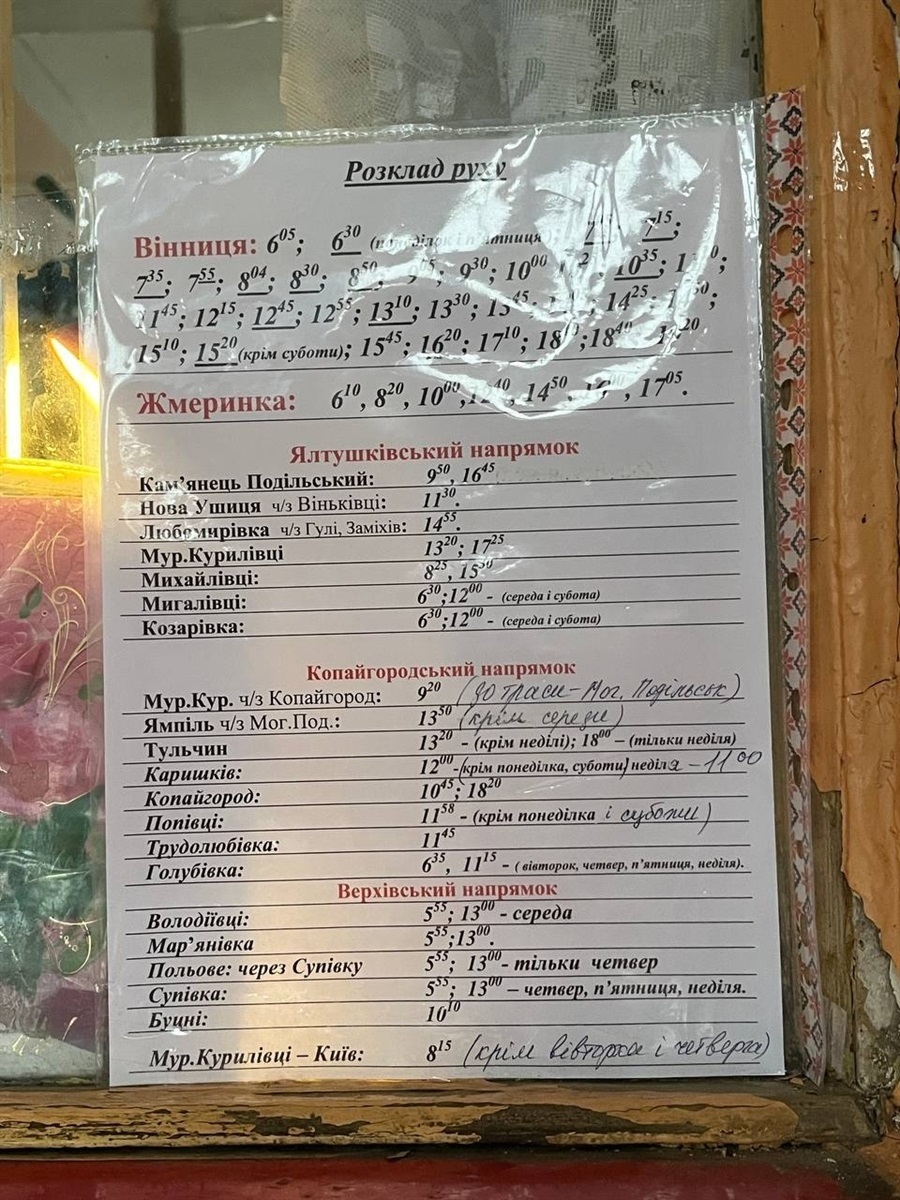 Розклад руху
Вінниця: 6⁰⁵; 6³⁰ (понеділок і п'ятниця) 7¹⁵;
7³⁵; 7⁵⁵; 8⁰⁴; 8³⁰; 8⁵⁰; 9³⁰; 10⁰⁰ 10³⁵;
11⁴⁵; 12¹⁵; 12⁴⁵; 12⁵⁵; 13¹⁰; 13³⁰; 13⁴⁵; 14²⁵;
15¹⁰; 15²⁰ (крім суботи); 15⁴⁵; 16²⁰; 17¹⁰; 18⁴⁰
Жмеринка: 6¹⁰, 8²⁰, 10⁰⁰, 12⁴⁰, 14⁵⁰, 17⁰⁵.
Ялтушківський напрямок
Кам'янець Подільський: 9⁵⁰, 16⁴⁵
Нова Ушиця ч/з Віньківці: 11³⁰.
Любомирівка ч/з Гулі, Заміхів: 14⁵⁵.
Мур.Курилівці 13²⁰; 17²⁵
Михайлівці: 8²⁵, 15³⁰
Мигалівці: 6³⁰;12⁰⁰ - (середа і субота)
Козарівка: 6³⁰;12⁰⁰ - (середа і субота)
Копайгородський напрямок
Мур.Кур. ч/з Копайгород: 9²⁰ (до траси - Мог. Подільськ)
Ямпіль ч/з Мог.Под.: 13⁵⁰ (крім середи)
Тульчин 13²⁰ - (крім неділі); 18⁰⁰ – (тільки неділя)
Каришків: 12⁰⁰-(крім понеділка, суботи) неділя - 11⁰⁰
Копайгород: 10⁴⁵; 18²⁰
Попівці: 11⁵⁸ - (крім понеділка і суботи)
Трудолюбівка: 11⁴⁵
Голубівка: 6³⁵, 11¹⁵ - ( вівторок, четвер, п'ятниця, неділя).
Верхівський напрямок
Володіївці: 5⁵⁵; 13⁰⁰ - середа
Мар'янівка 5⁵⁵;13⁰⁰.
Польове: через Супівку 5⁵⁵; 13⁰⁰- тільки четвер
Супівка: 5⁵⁵; 13⁰⁰ – четвер, п'ятниця, неділя.
Буцні: 10¹⁰
Мур.Курилівці – Київ: 8¹⁵ (крім вівторка і четверга)